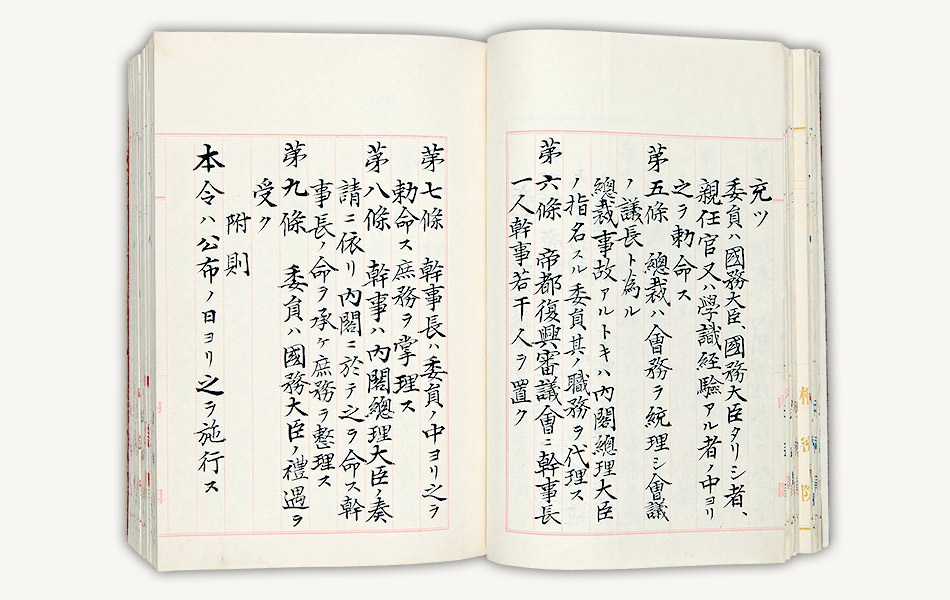 充ツ
委員ハ國務大臣、國務大臣タリシ者、
親任官又ハ學識經驗アル者ノ中ヨリ
之ヲ勅命ス
第五條 總裁ハ會務ヲ統理シ會議
ノ議長ト為ル
總裁事故アルトキハ內閣總理大臣
ノ指名スル委員其ノ職務ヲ代理ス
第六條 帝都復興審議會ニ幹事長
一人幹事若干人ヲ置ク
第七條 幹事長ハ委員ノ中ヨリ之ヲ
勅命ス庶務ヲ掌理ス
第八條 幹事ハ內閣總理大臣ノ奏
請ニ依リ內閣ニ於テ之ヲ命ス幹
事長ノ命ヲ承ケ庶務ヲ整理ス
第九條 委員ハ國務大臣ノ禮遇ヲ
受ク
附則
本令ハ公布ノ日ヨリ之ヲ施行ス